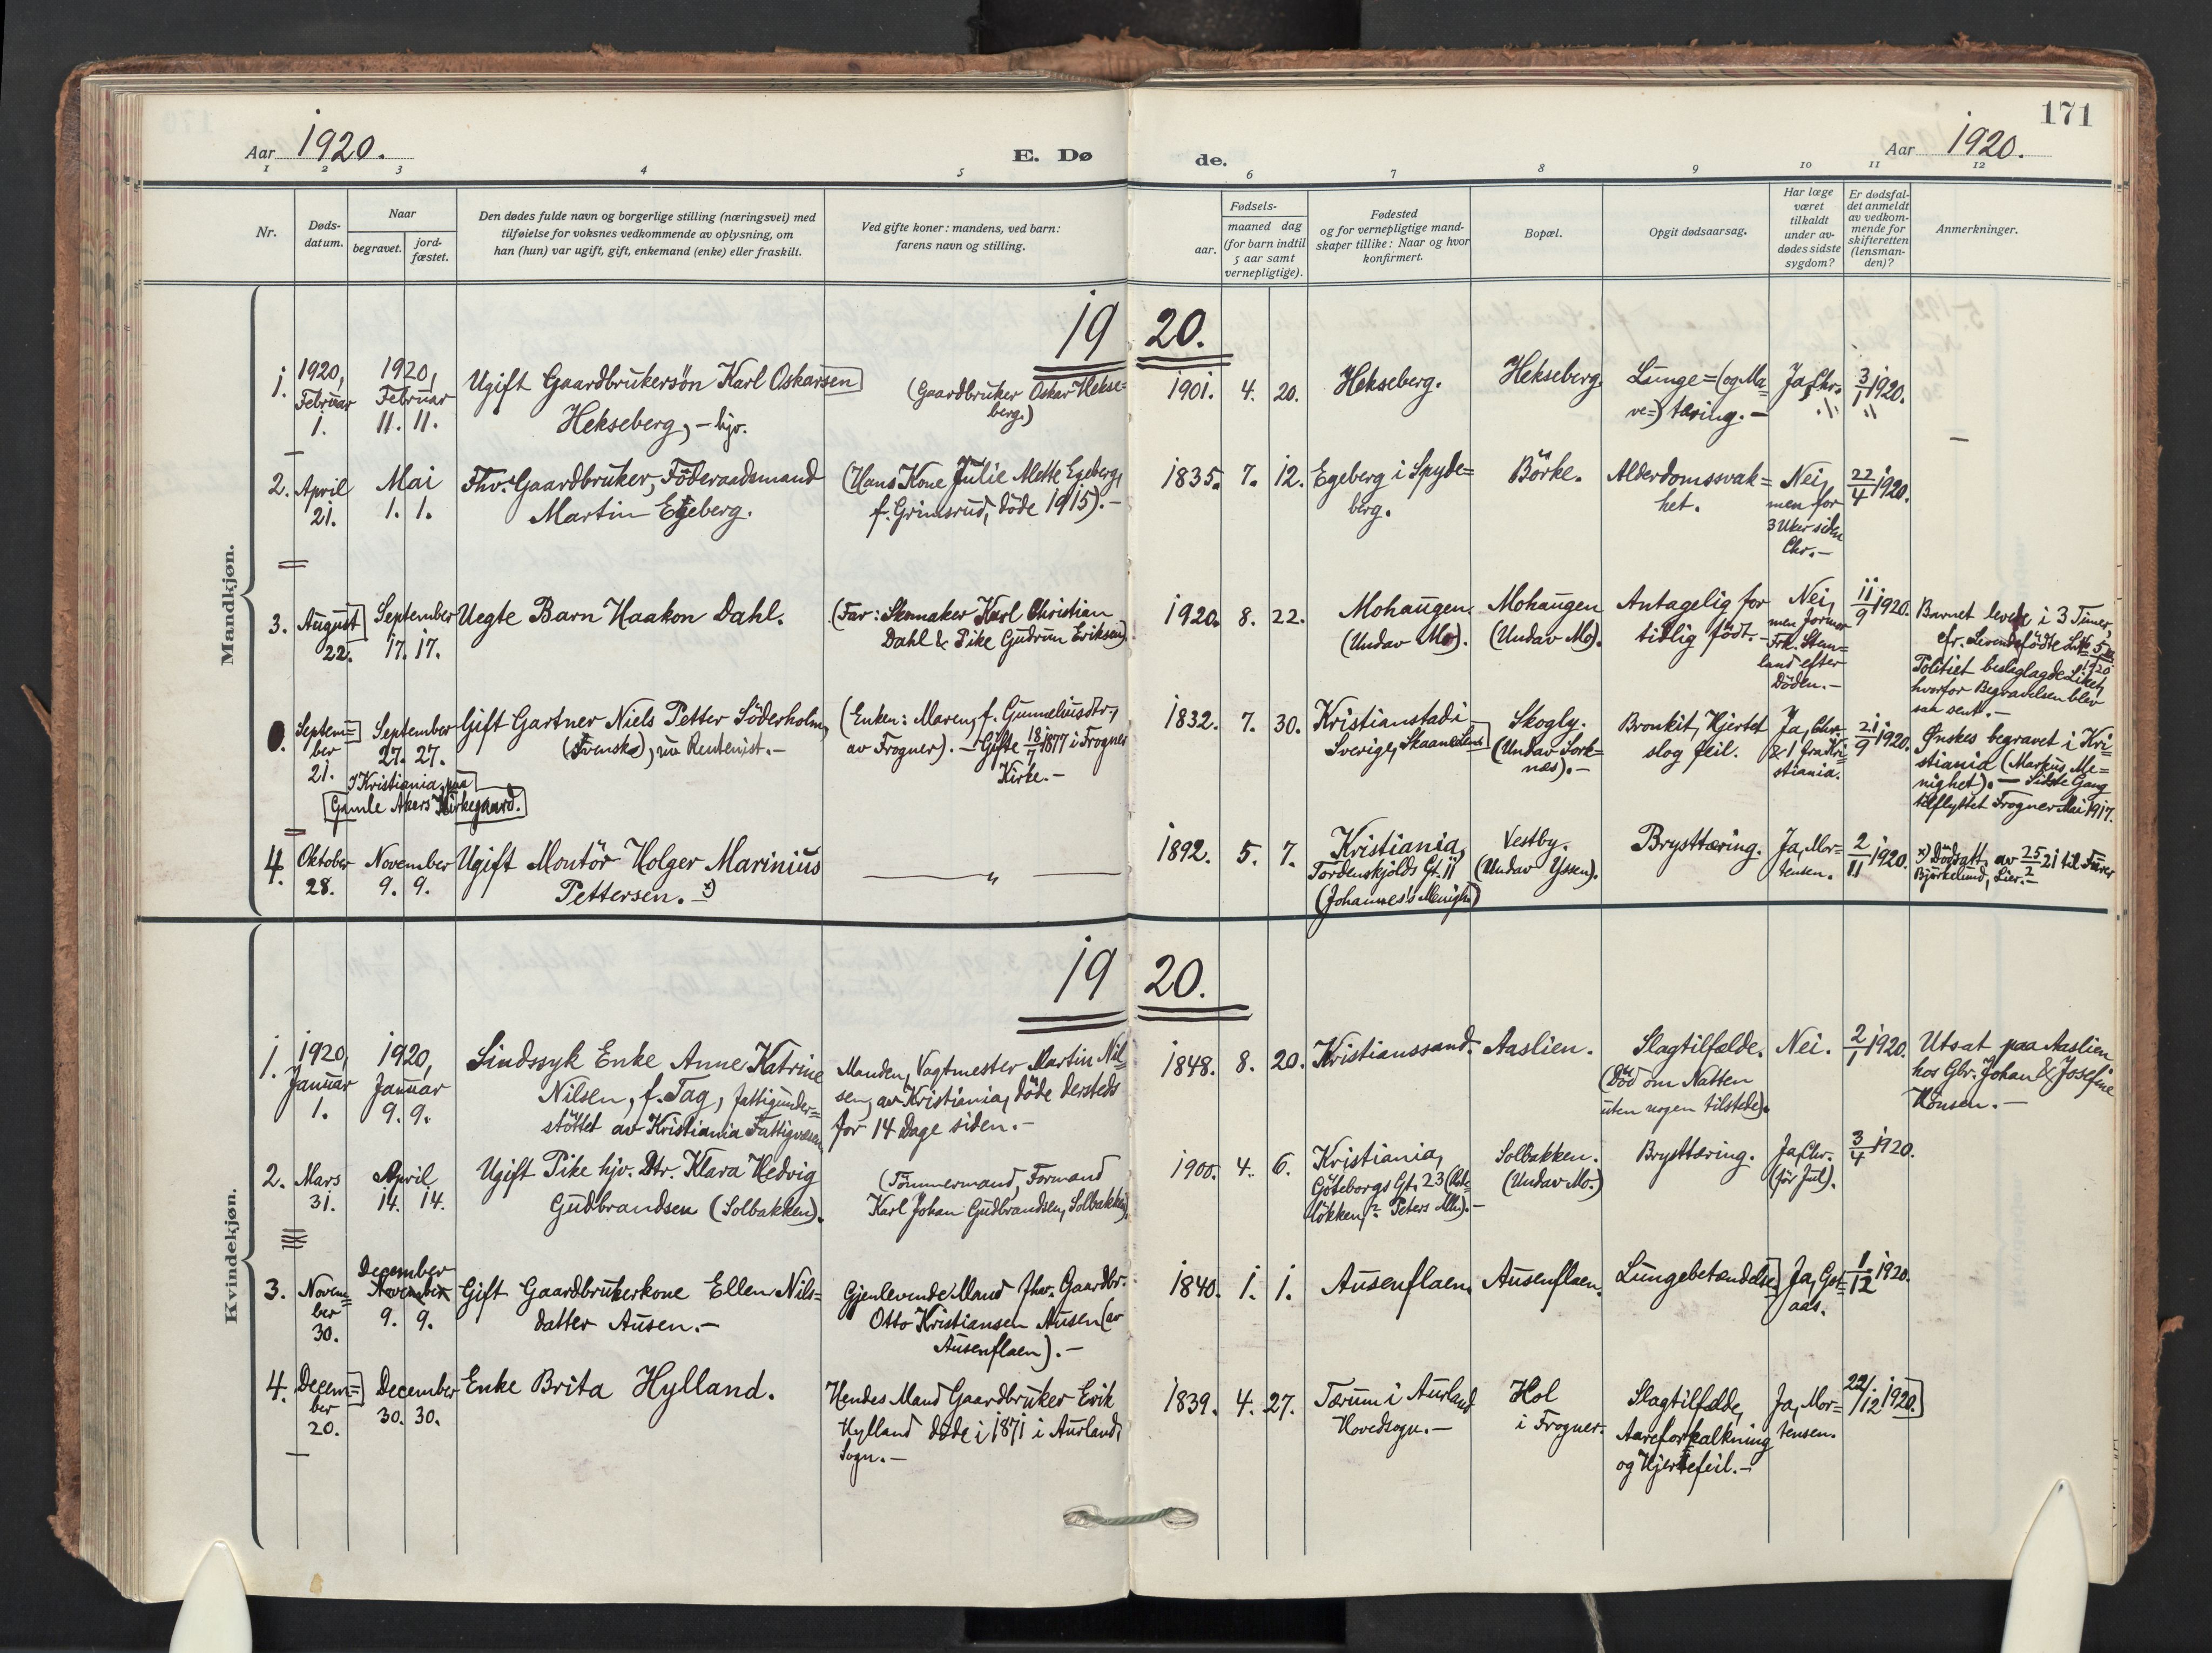 171
Aar 1920.
E. Dø
de.
Aar 1920.
1 2 3 4 5 6 7 8 9 10 11 12
Nr.
Døds-
datum.
Naar
begravet.
jord-
fæstet.
Den dødes fulde navn og borgerlige stilling (næringsvei) med
tilføielse for voksnes vedkommende av oplysning, om
han (hun) var ugift, gift, enkemand (enke) eller fraskilt.
Ved gifte koner: mandens, ved barn:
farens navn og stilling.
Fødsels-
aar.
maaned dag
(for barn indtil
5 aar samt
vernepligtige).
Fødested
og for vernepligtige mand-
skaper tillike: Naar og hvor
konfirmert.
Bopæl.
Opgit dødsaarsag.
Har læge
været
tilkaldt
under av-
dødes sidste
sygdom?
Er dødsfal-
det anmeldt
av vedkom-
mende for
skifteretten
(lensman-
den)?
Anmerkninger.
Mandkjøn.
19 20.
1.
1920,
Februar
1.
1920,
Februar
11. 11.
Ugift Gaardbrukersön Karl Oskarsen
Hekseberg, – hjv.
(Gaardbruker Oskar Hekse=
berg.)
1901. 4. 20.
Hekseberg.
Hekseberg.
Lunge=(og Ma=
ve=) tæring. –
Ja, Chr.
3/1 1920.
2.
April
21.
Mai
1. 1.
Fhv. Gaardbruker, Föderaadsmand
Martin Egeberg.
(Hans Kone Julie Mette Egeberg,
f. Grimsrud, döde 1915). –
1835. 7. 12.
Egeberg i Spyde=
berg.
Börke.
Alderdomssvak=
het.
Nei,
men for
3 Uker siden
Chr. –
22/4 1920.
3.
August
22.
September
17. 17.
Uegte Barn Haakon Dahl.
(Far: Skomaker Karl Christian
Dahl & Pike Gudrun Eriksen)
1920. 8. 22.
Mohaugen
(Undav Mo).
Mohaugen
(Undav Mo).
Antagelig for
tidlig födt. –
Nei,
men Jormor
Frk. Sten=
land efter
Döden. –
11/9 1920.
Barnet levede i 3 Timer,
cfr. Levendefödte
Politiet beslaglagde Liket,
hvorfor Begravelsen blev
saa sent. –
0.
Septem=
ber
21.
September
27. 27.
I Kristiania, paa
Gamle Akers Kirkegaard.
Gift Gartner Niels Petter Söderholm,
(Svensk), nu Rentenist. –
(Enken: Maren, f. Gunnelvisdtr.,
av Frogner). – Gifte 18/7 1877 i Frogner
Kirke. –
1832. 7. 30.
Kristianstad i
Sverige, Skaane Len
Skogly.
(Undav Sork=
næs). –
Bronkit, Hjertet
slog feil.
Ja, Chr.
& 1 fra Kri=
stiania.
21/9 1920.
Ønskes begravet i Kri=
stiania (Markus Me=
nighet). – Sidste Gang
tilflyttet Frogner Mai 1917.
4.
Oktober
28.
November
9. 9.
Ugift Montör Holger Marinius
Pettersen. – x)
— „ —
1892. 5. 7.
Kristiania,
Tordenskjolds Gt. 11
(Johannes's Menigh.)
Vestby.
(Undav Yssen).
Brysttæring.
Ja, Mor=
tensen.
2/11 1920.
x) Dödsatt. av 25/2 21 til Fürer
Björkelund, Lier. –
Kvindekjøn.
19 20.
1.
1920,
Januar
1.
1920,
Januar
9. 9.
Sindssyk Enke Anne Katrine
Nilsen, f. Tag, fattigunder=
støttet av Kristiania Fattigvæsen
Manden, Vagtmester Martin Nil=
sen, av Kristiania, döde dersteds
for 14 Dage siden. –
1848. 8. 20.
Kristianssand.
Aaslien.
Slagtilfælde.
(Död om Natten
uten nogen tilstede).
Nei.
2/1 1920.
Utsat paa Aaslien
hos Gbr. Johan & Josefine
Hönsen. –
2.
Mars
31.
April
14. 14.
Ugift Pike hjv. Dtr. Klara Hedvig
Gudbrandsen (Solbakken).
(Tömmermand, Formand
Karl Johan Gudbrandsen, Solbakken).
1900. 4. 6.
Kristiania,
Göteborgs Gt. 23 (Rode=
lökken, ? Peters Mh.). –
Solbakken.
(Undav Mo.)
Brysttæring.
Ja, Chr.
(för Jul).
3/4 1920.
3.
Novem=
ber
30.
December
November
9. 9.
Gift Gaardbrukerkone Ellen Nils=
datter Ausen. –
Gjenlevende Mand fhv. Gaardbr.
Otto Kristiansen Ausen (av
Ausenflaen). –
1840. 1. 1.
Ausenflaen.
Ausenflaen.
Lungebetændelse
Ja, Got=
aas.
1/12 1920.
4.
Decem=
ber
20.
December
30. 30.
Enke Brita Hylland.
Hendes Mand Gaardbruker Erik
Hylland döde i 1871 i Aurland,
Sogn. –
1839. 4. 27.
Tærum i Aurland
Hovedsogn. –
Hol
i Frogner.
Slagtilfælde,
Aareforkalkning
og Hjertefeil. –
Ja, Mor=
tensen.
22/12 1920.